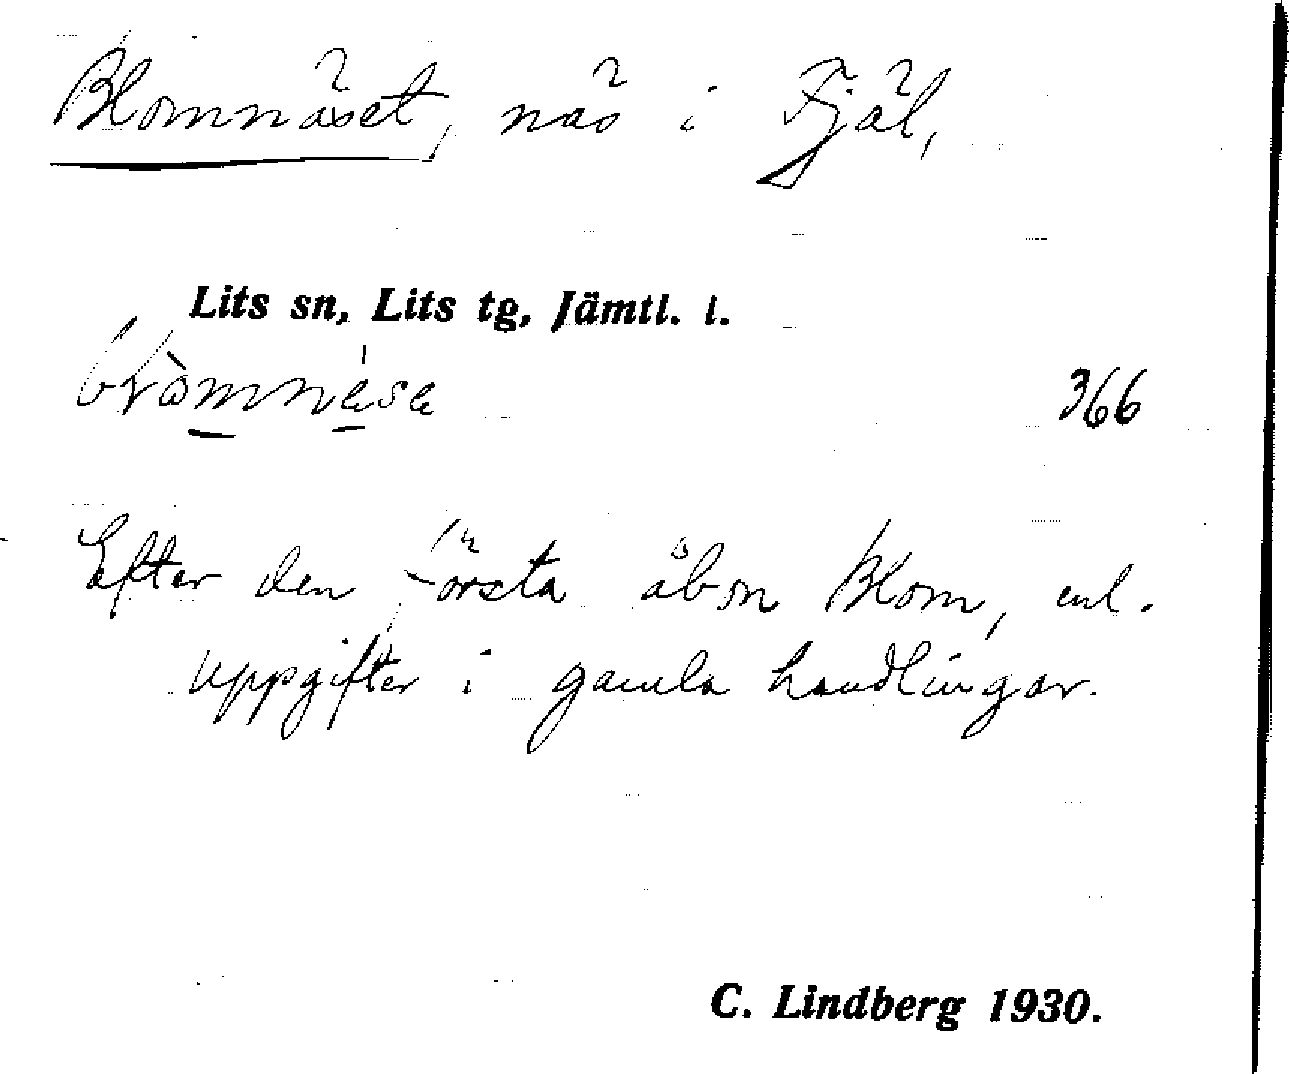 Blomnäset, näs i Fjäl,
Lits sn, Lits tg, Jämtl. l.
366
Efter den första åbon Blom, enl.
uppgifter i gamla handlingar.
C. Lindberg 1930.